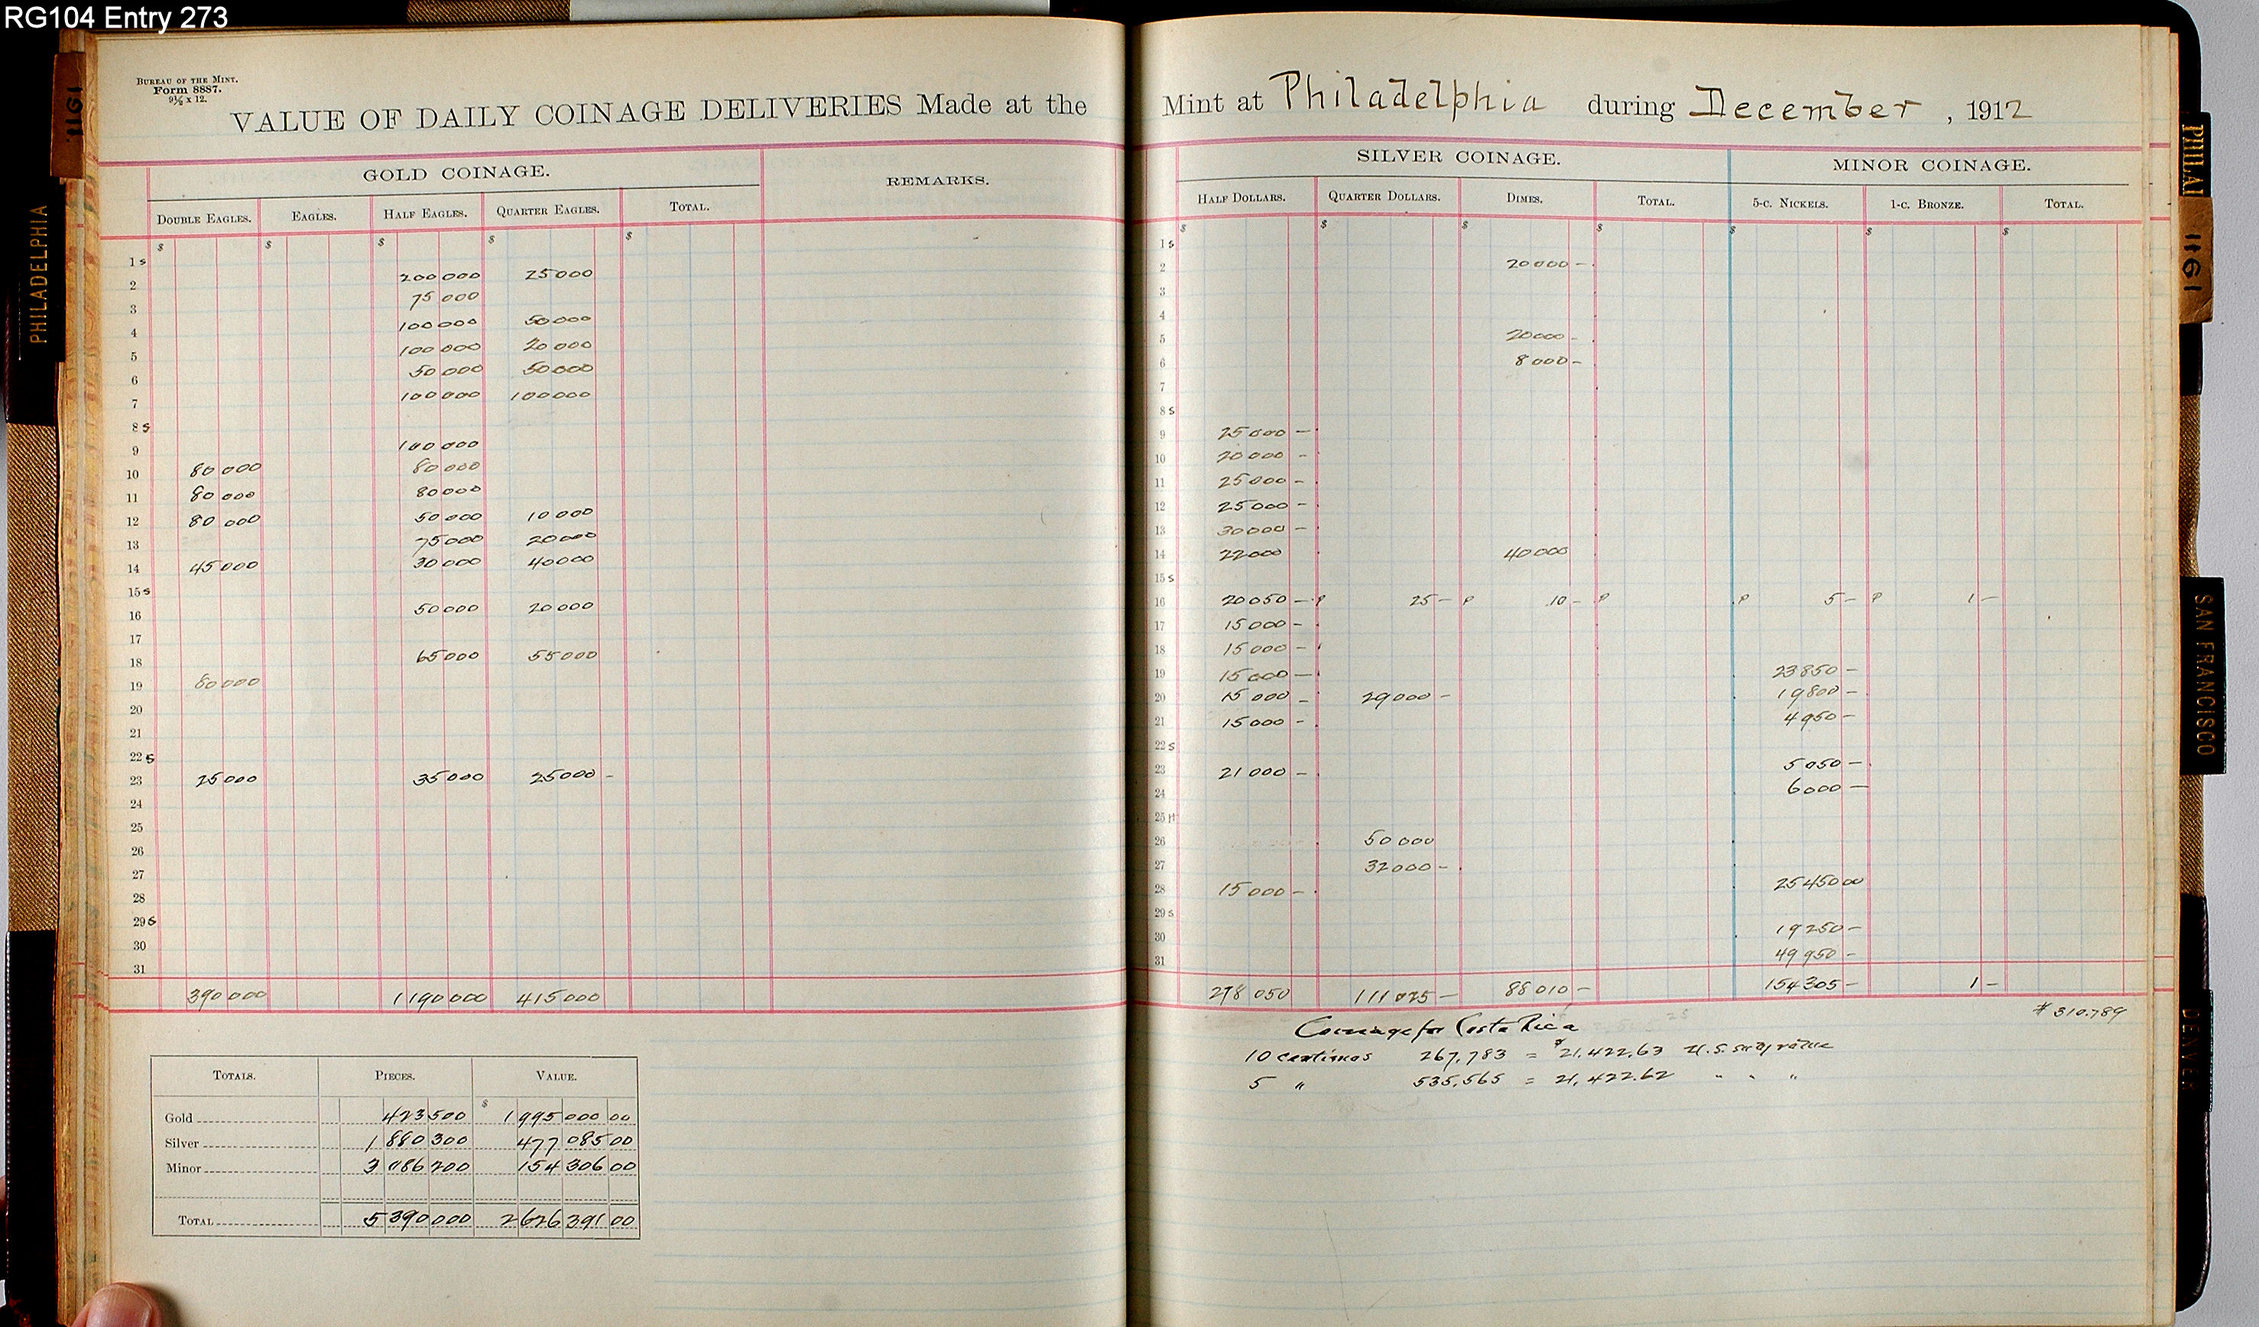 RG104 Entry 273
BUREAU OF THE MINT.
Form 8887.
9½ x 12.
VALUE OF DAILY COINAGE DELIVERIES Made at the Mint at Philadelphia during December, 1912
GOLD COINAGE. REMARKS.
DOUBLE EAGLES. EAGLES. HALF EAGLES. QUARTER EAGLES. TOTAL.
$ $ $ $ $
1 s
2 200 000 25 000
3 75 000
4 100 000 50 000
5 100 000 20 000
6 50 000 50 000
7 100 000 100 000
8 s
9 100 000
10 80 000 80 000
11 80 000 80 000
12 80 000 50 000 10 000
13 75 000 20 000
14 45 000 30 000 40 000
15 s
16 50 000 20 000
17
18 65 000 55 000
19 80 000
20
21
22 s
23 25 000 35 000 25 000 -
24
25
26
27
28
29 s
30
31
390 000 1 190 000 415 000
TOTALS. PIECES. VALUE.
Gold 423 500 $ 1 995 000 00
Silver 1 880 300 477 085 00
Minor 3 086 200 154 306 00
TOTAL 5 390 000 2 626 391 00
SILVER COINAGE. MINOR COINAGE.
HALF DOLLARS. QUARTER DOLLARS. DIMES. TOTAL. 5-C. NICKELS. 1-C. BRONZE. TOTAL.
$ $ $ $ $ $ $
1 s
2 20 000 -
3
4
5 20 000 -
6 8 000 -
7
8 s
9 25 000 -
10 20 000 -
11 25 000 -
12 25 000 -
13 30 000 -
14 22 000 40 000
15 s
16 20 050 - P 25 - P 10 - P P 5 - P 1 -
17 15 000 -
18 15 000 -
19 15 000 - 23 850 -
20 15 000 - 29 000 - 19 800 -
21 15 000 - 4 950 -
22 s
23 21 000 - 5 050 -
24 6 000 -
25 H
26 50 000
27 32 000 -
28 15 000 - 25 450 00
29 s
30 19 250 -
31 49 950 -
278 050 111 025 - 88 010 - 154 305 - 1 -
$ 310.789
Coinage for Costa Rica
10 centimos 267,783 = $21,422.63 U.S. value
5 " 535,565 = 21,422.62 " " "
PHILADELPHIA
1911
PHILA
1911
SAN FRANCISCO
DENVER